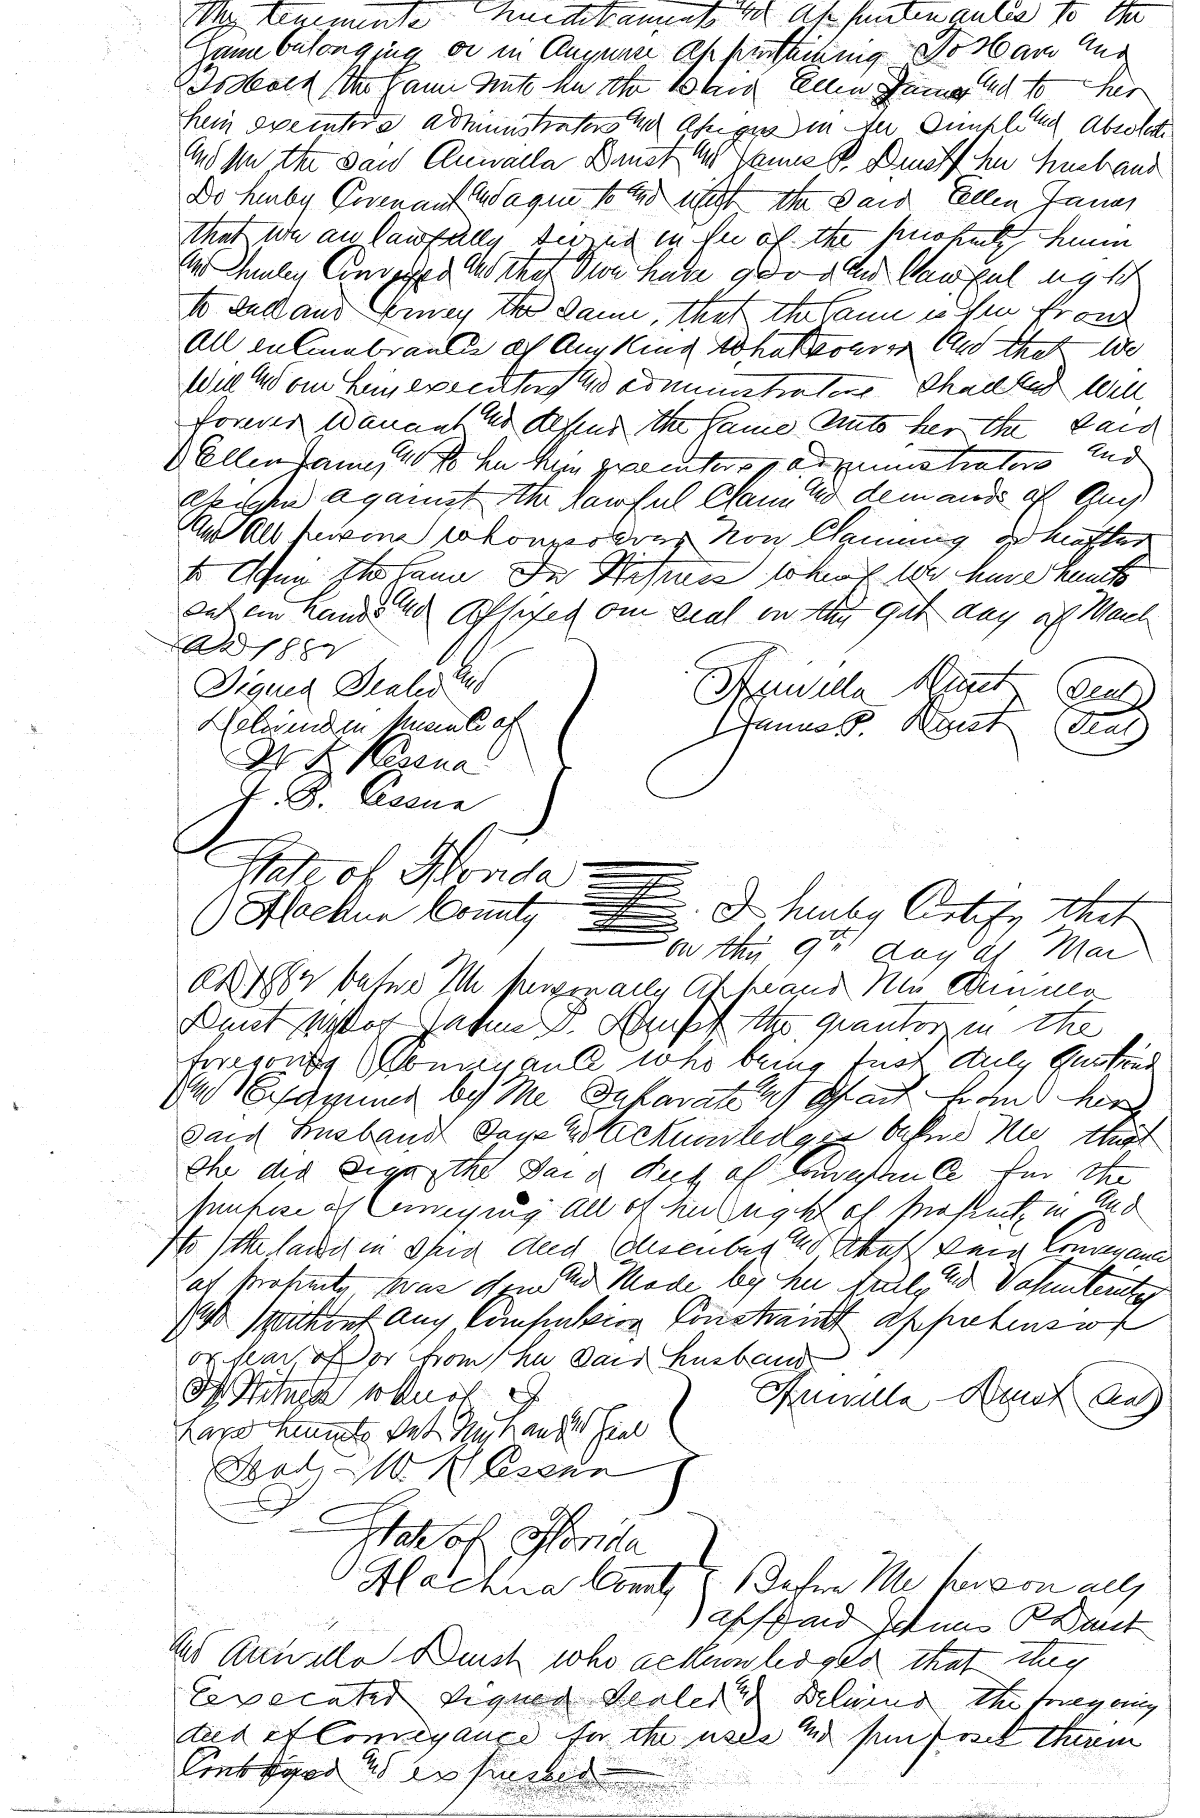 the tenements hereditaments and appurtenances to the
Same belonging or in Anywise appertaining To Have and
To Hold the Same unto her the Said Ellen James and to her
heirs executors administrators and assigns in fee Simple and absolute
And we the said Aurvilla Durst and James P. Durst her husband
Do hereby Covenant and agree to and with the said Ellen James
that we are lawfully seized in fee of the property herein
and hereby Conveyed and that we have good and lawful right
to sell and Convey the same, that the Same is free from
all encumbrances of any Kind whatsoever And that we
Will and our heirs executors and administrators shall and will
forever warrant and defend the Same unto her the said
Ellen James and to her heirs executors, administrators and
assigns against the lawful Claim and demands of any
and all persons whomsoever Now Claiming or heafter
to Claim the Same In Witness whereof we have hereunto
set our hands and Affixed our seal on this 9th day of March
AD 1882
Signed Sealed and
Delivered in presence of
W K Cessna
J. B. Cessna
Aurvilla Durst (Seal)
James P. Durst (Seal)
State of Florida
Alachua County I hereby Certify that
on this 9th day of Mar
AD 1882 before Me personally Appeared Mrs Aurvilla
Durst wife of James P. Durst the grantor in the
foregoing Conveyance who being first duly questioned
and Examined by Me Separate and Apart from her
said husband says and acknowledges before Me that
She did Sign the Said deed of Conveyance for the
purpose of Conveying all of her right of property in and
to the land in said deed described and that said Conveyance
of property was done and Made by her freely and Voluntarily
and without any Compulsion Constraint apprehension
or fear of or from her said husband
In Witness whereof I
have hereunto set My hand and Seal
W. K Cessna
Aurvilla Durst (Seal)
State of Florida
Alachua County Before Me personally
appeard James P Durst
and Aurvilla Durst who acknowledged that they
Executed signed sealed and Delivered the foregoing
deed of Conveyance for the uses and purposes therein
Contained and expressed